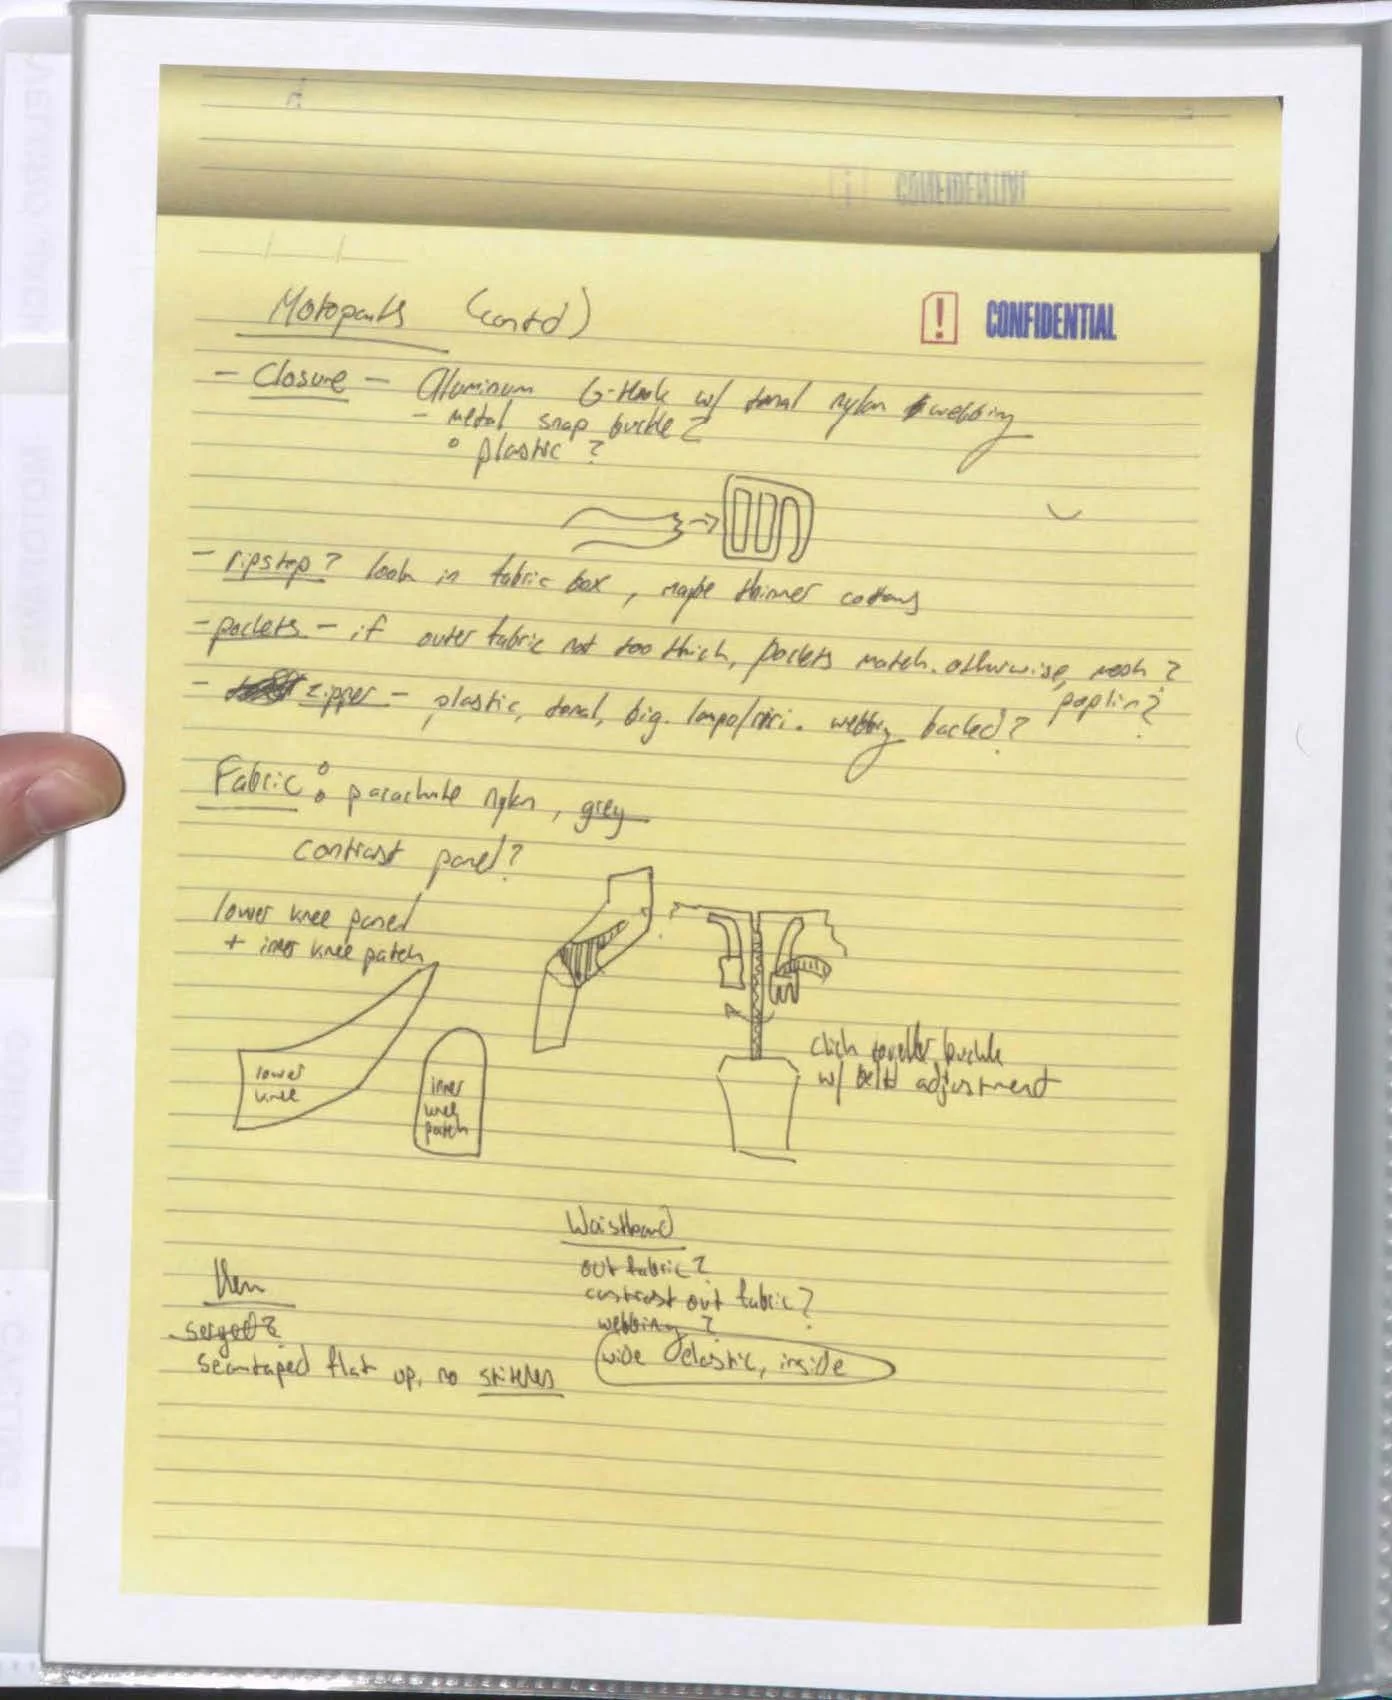 CONFIDENTIAL
Motopants (contd)
! CONFIDENTIAL
- Closure - Aluminum G-Hook w/ tonal nylon webbing
- metal snap buckle?
° plastic?
- ripstop? look in fabric box, maybe thinner cottons
- pockets - if outer fabric not too thick, pockets match. otherwise, mesh?
poplin?
- zipper - plastic, tonal, big. lampo/riri. webbing backed?
Fabric: parachute nylon, grey
contrast panel?
lower knee panel
+ inner knee patch
lower
knee
inner
knee
patch
click together buckle
w/ belt adjustment
Waistband
out fabric?
contrast out fabric?
webbing?
wide elastic, inside
Hem
serged?
seamtaped flat up, no stitches